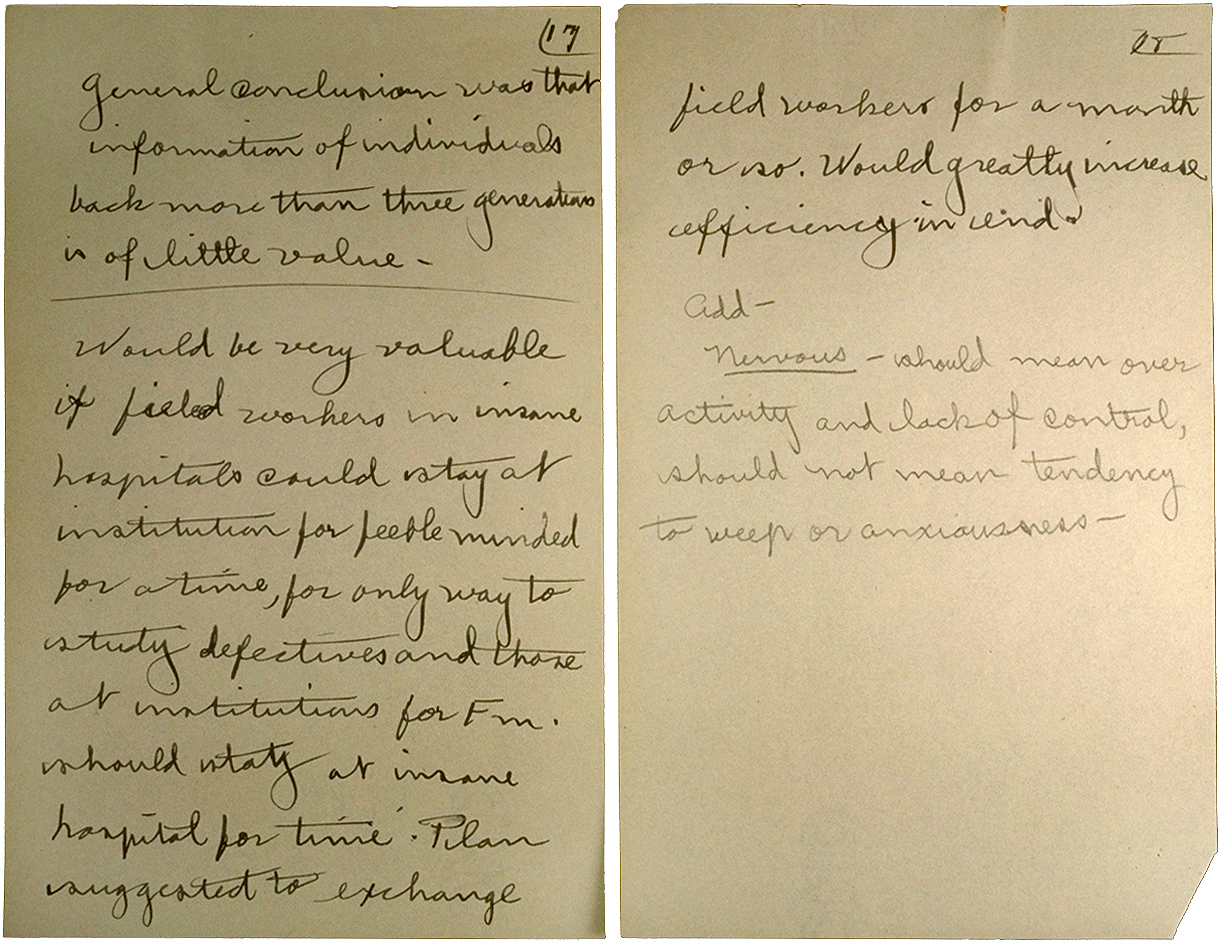 17
General conclusion was that
information of individuals
back more than three generations
is of little value -
Would be very valuable
if field workers in insane
hospitals could stay at
institution for feeble minded
for a time, for only way to
study defectives and those
at institutions for F m.
should stay at insane
hospital for time. Plan
suggested to exchange
field workers for a month
or so. Would greatly increase
efficiency in end.
Add -
Nervous - should mean over
activity and lack of control,
should not mean tendency
to weep or anxiousness -